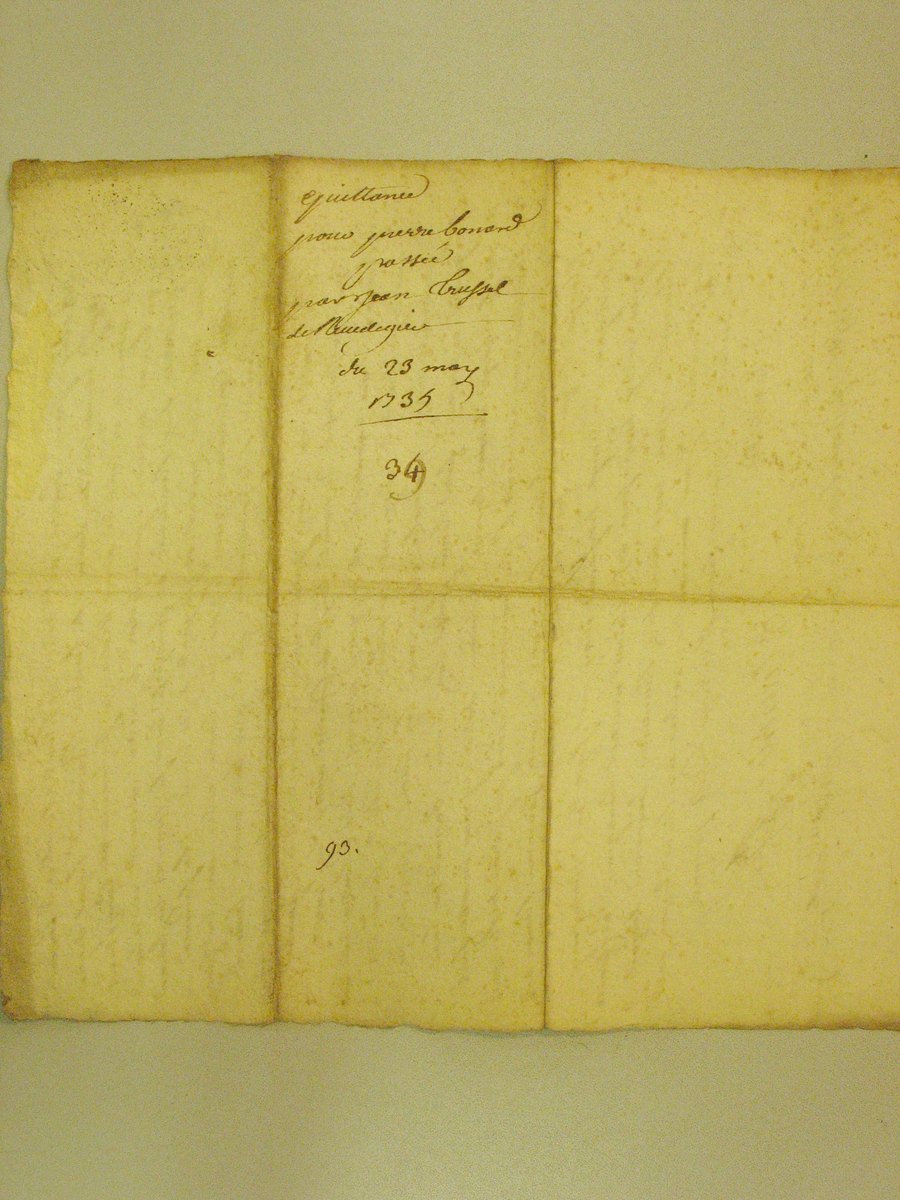 Quittance
pour pierre bonard
passée
par Jean Trussel
du 23 may
1735
34
93.